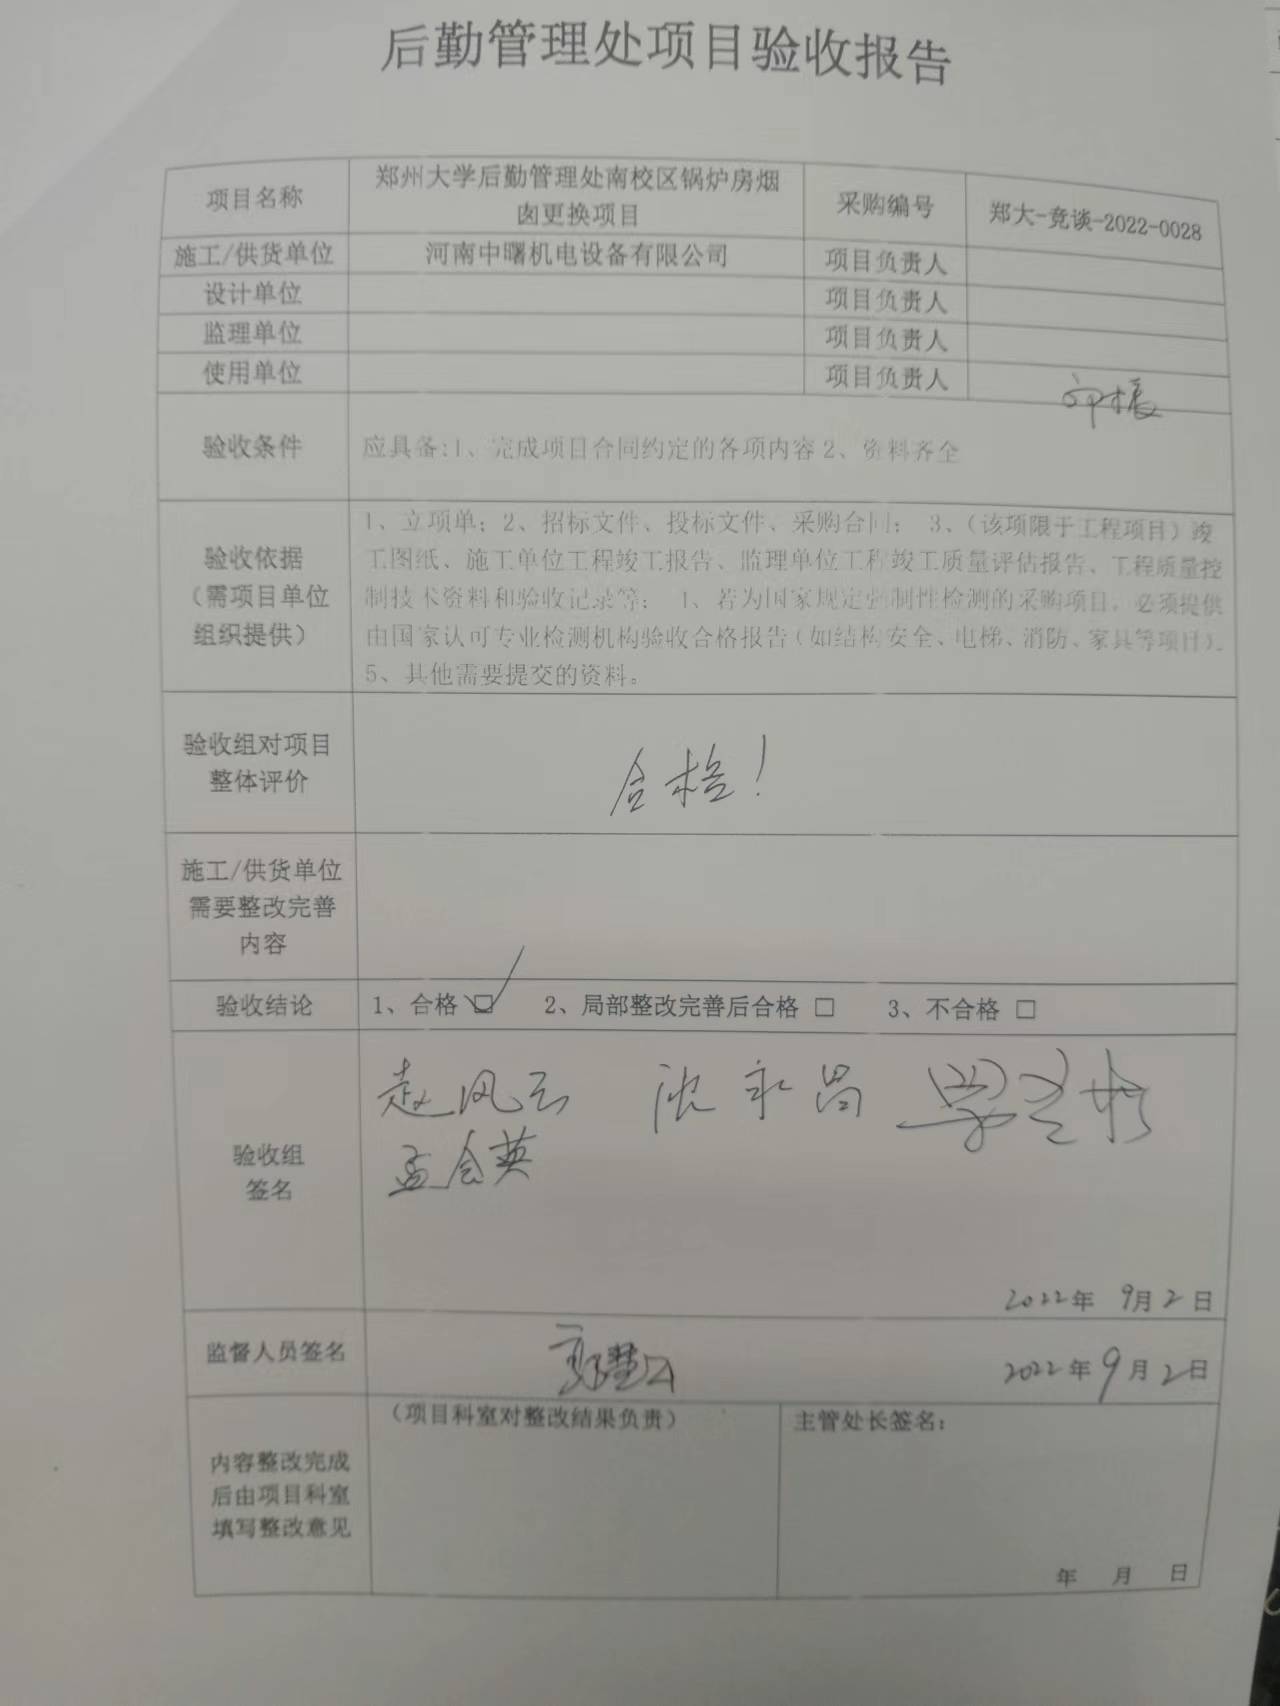 后勤管理处项目验收报告
项目名称
郑州大学后勤管理处南校区锅炉房烟
囱更换项目
采购编号
郑大-竞谈-2022-0028
施工/供货单位
河南中曙机电设备有限公司
项目负责人
设计单位
项目负责人
监理单位
项目负责人
使用单位
项目负责人
验收条件
应具备:1、完成项目合同约定的各项内容 2、资料齐全
验收依据
（需项目单位
组织提供）
1、立项单；2、招标文件、投标文件、采购合同； 3、（该项限于工程项目）竣
工图纸、施工单位工程竣工报告、监理单位工程竣工质量评估报告、工程质量控
制技术资料和验收记录等； 4、若为国家规定强制性检测的采购项目，必须提供
由国家认可专业检测机构验收合格报告（如结构安全、电梯、消防、家具等项目）。
5、其他需要提交的资料。
验收组对项目
整体评价
合格！
施工/供货单位
需要整改完善
内容
验收结论
1、合格 ☑ 2、局部整改完善后合格 □ 3、不合格 □
验收组
签名
赵风云 沈永昌
孟会英
2022年 9月2日
监督人员签名
2022年9月2日
内容整改完成
后由项目科室
填写整改意见
（项目科室对整改结果负责）
主管处长签名：
年 月 日